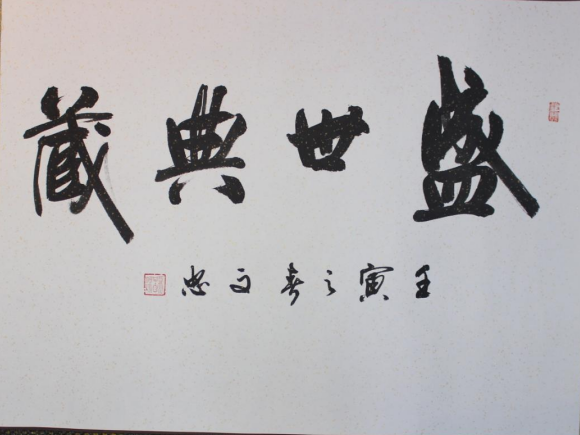 盛世典藏
壬寅之春文忠